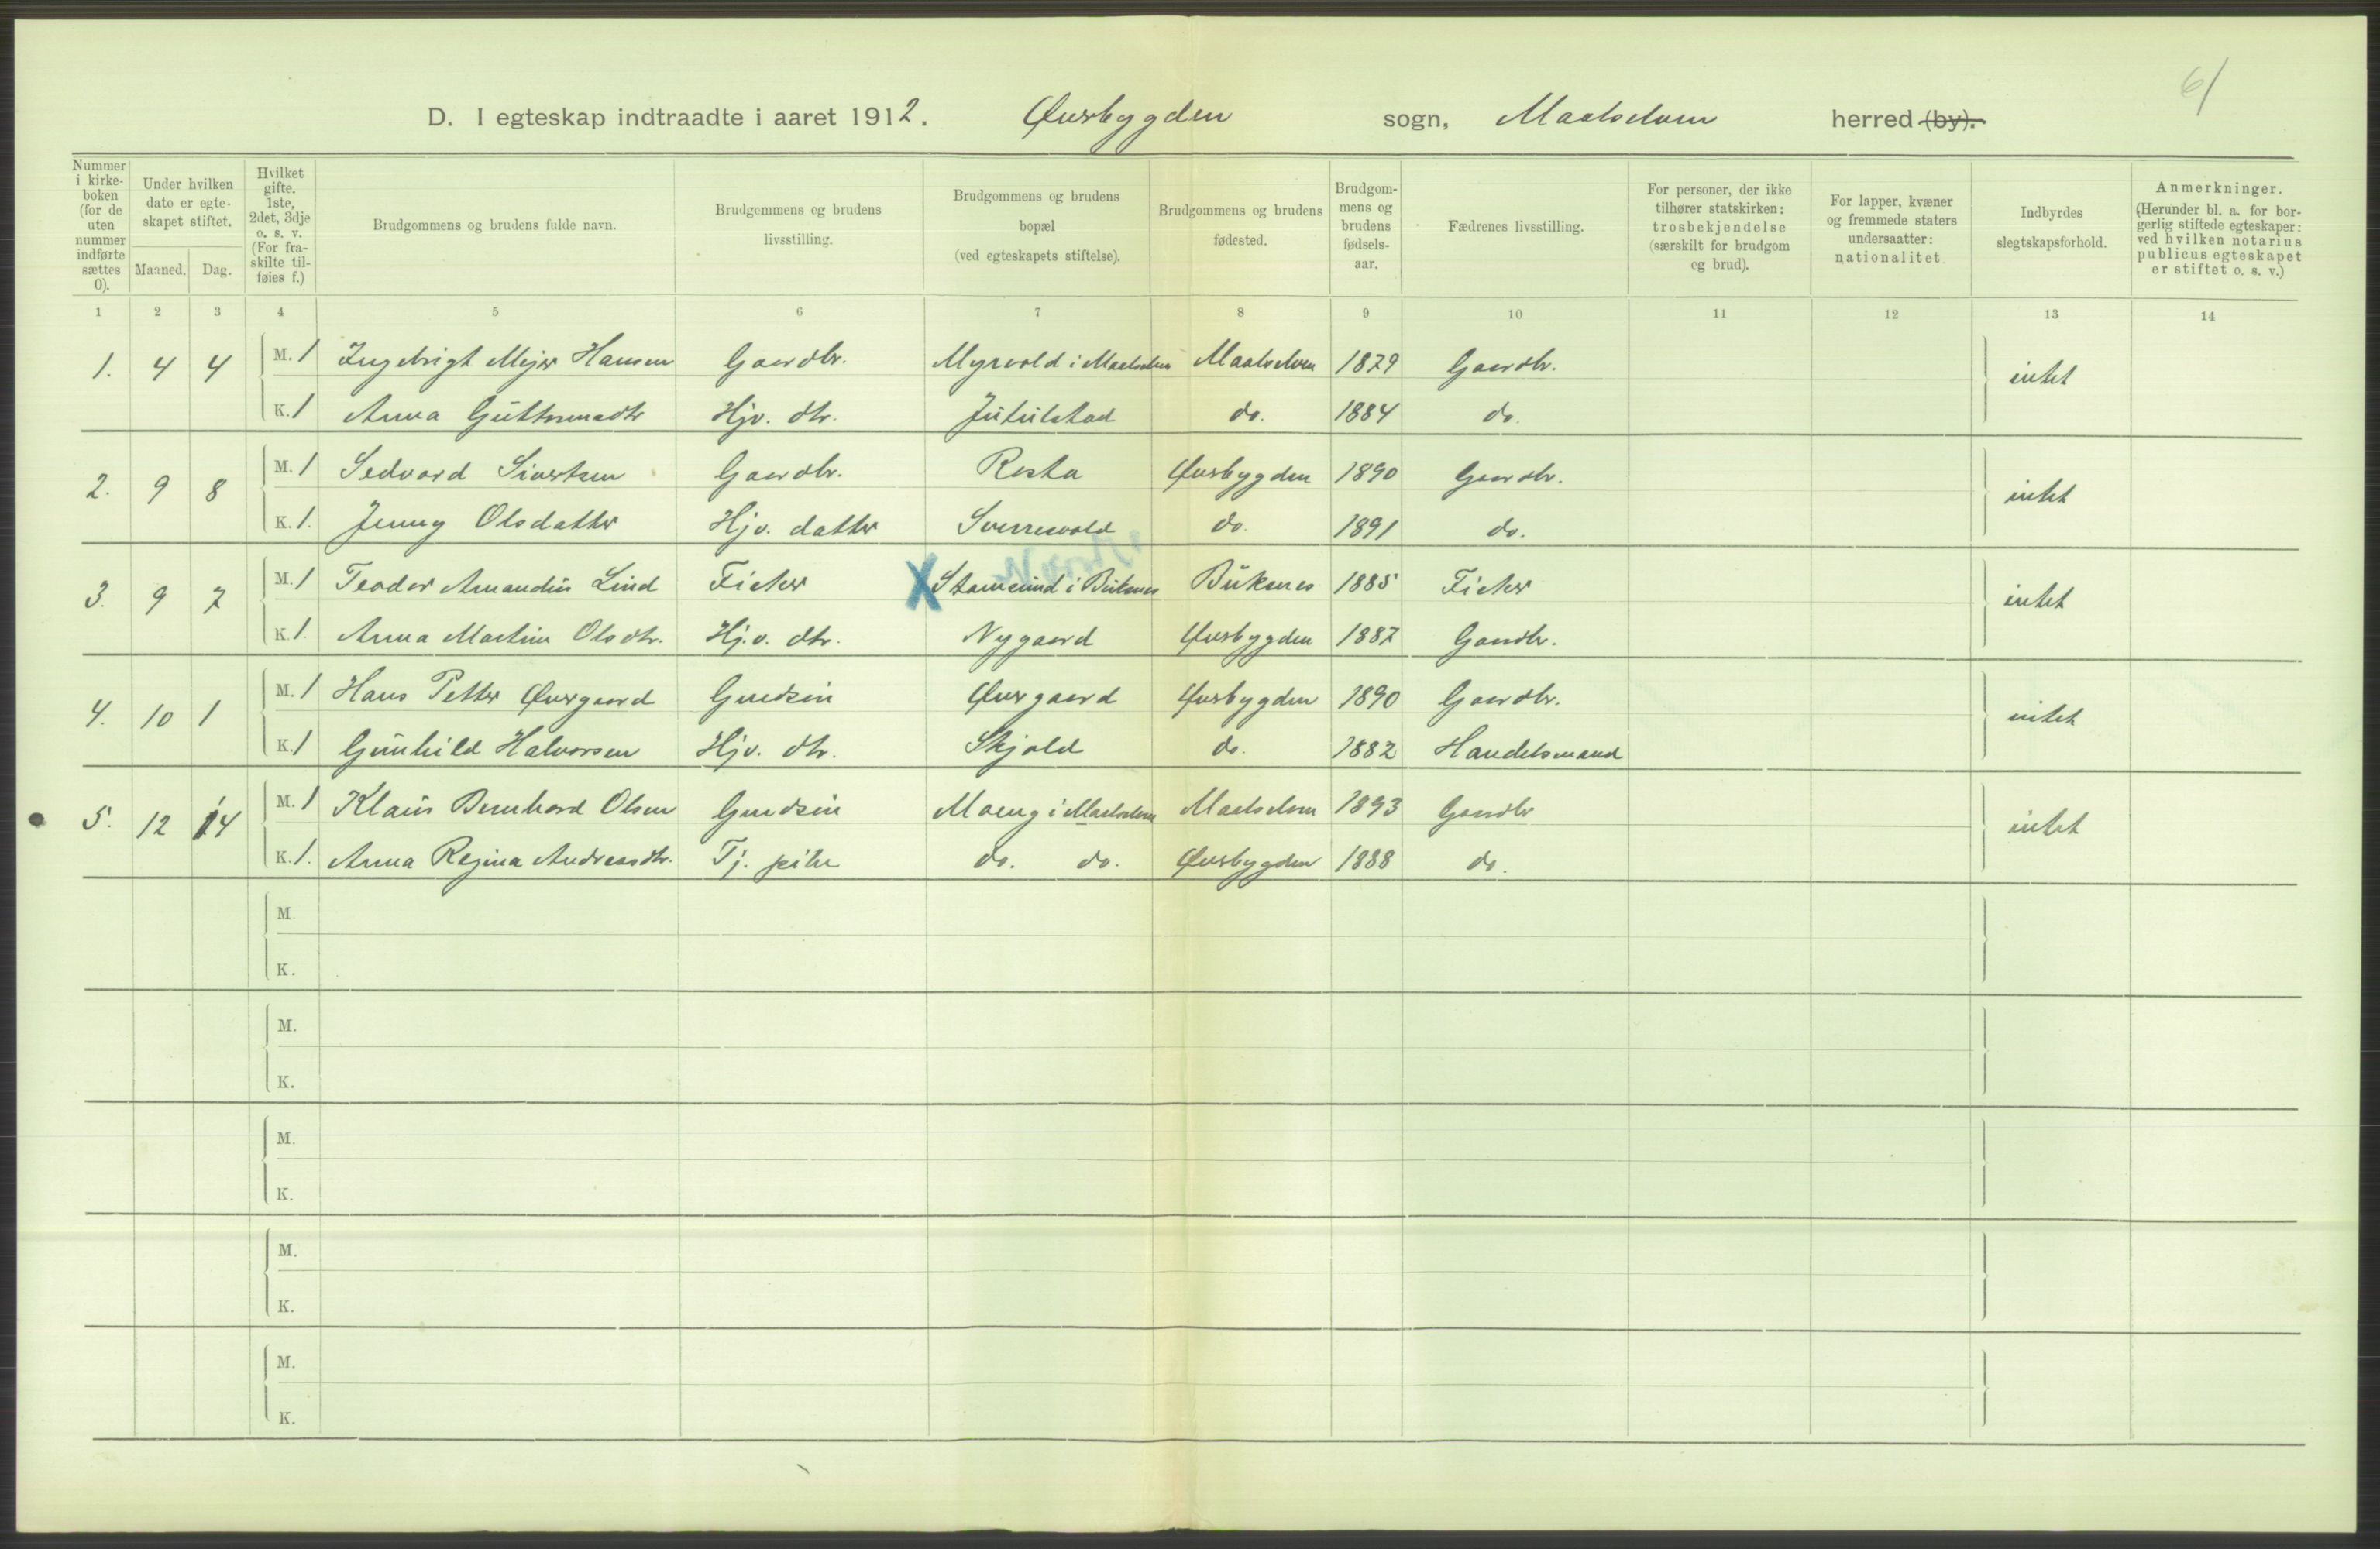 61
D. I egteskap indtraadte i aaret 1912. Øverbygden sogn, Maalselven herred (by).
Nummer i kirkeboken (for de uten nummer indførte sættes 0).
Under hvilken dato er egteskapet stiftet.
Maaned. Dag.
Hvilket gifte. 1ste, 2det, 3dje o. s. v. (For fraskilte tilføies f.)
Brudgommens og brudens fulde navn.
Brudgommens og brudens livsstilling.
Brudgommens og brudens bopæl (ved egteskapets stiftelse).
Brudgommens og brudens fødested.
Brudgommens og brudens fødselsaar.
Fædrenes livsstilling.
For personer, der ikke tilhører statskirken: trosbekjendelse (særskilt for brudgom og brud).
For lapper, kvæner og fremmede staters undersaatter: nationalitet
Indbyrdes slegtskapsforhold.
Anmerkninger. (Herunder bl. a. for borgerlig stiftede egteskaper: ved hvilken notarius publicus egteskapet er stiftet o. s. v.)
1 2 3 4 5 6 7 8 9 10 11 12 13 14
1. 4 4 M. 1 Ingebrigt Mejer Hansen Gaardbr. Myrvold i Maalselven Maalselven 1879 Gaardbr. intet
K. 1 Anna Guttormsdtr Hjv. dtr. Jutulstad do. 1884 do.
2. 9 8 M. 1 Sedvard Sivertsen Gaardbr. Rosta Øverbygden 1890 Gaardbr. intet
K. 1. Jenny Olsdatter Hjv. datter Sverresvold do. 1891 do.
3. 9 7 M. 1 Teodor Amandus Lind Fisker X Stamsund i Buksnes Buksnes 1885 Fisker intet
K. 1. Anna Martine Olsdtr. Hj.v. dtr. Nygaard Øverbygden 1887 Gaardbr.
4. 10 1 M. 1 Hans Petter Øvergaard Grdsøn Øvergaard Øverbygden 1890 Gaardbr. intet
K. 1 Gunhild Halvorsen Hjv. dtr. Skjold do. 1882 Handelsmand
5. 12 14 M. 1 Klaus Bernhard Olsen Grdsøn Moeng i Maalselven Maalselven 1893 Gaardbr intet
K. 1. Anna Regina Andreasdtr. Tj. pike do. do. Øverbygden 1888 do.
M
K.
M.
K.
M.
K.
M.
K.
M.
K.